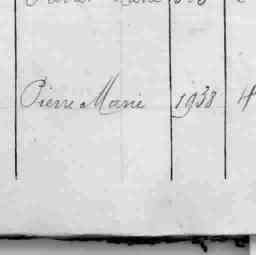 Pierre Marie 1938 4